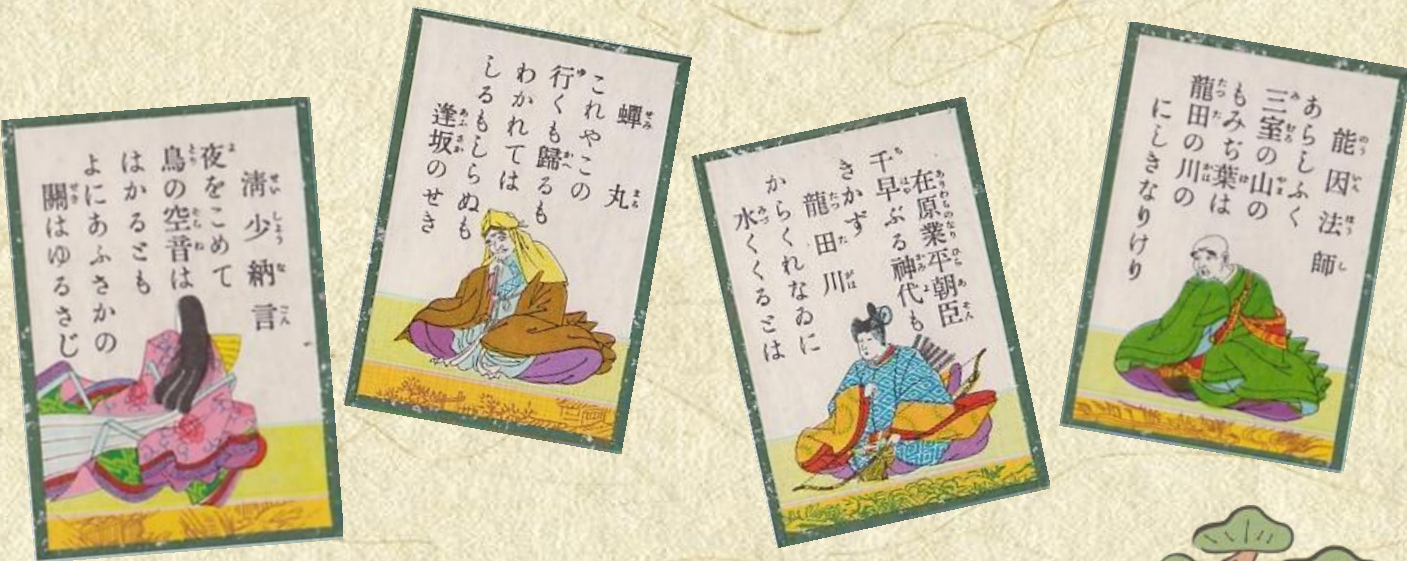 清少納言
夜をこめて
鳥の空音は
はかるとも
よにあふさかの
關はゆるさじ
蟬丸
これやこの
行くも歸るも
わかれては
しるもしらぬも
逢坂のせき
在原業平朝臣
千早ぶる神代も
きかず
龍田川
からくれなゐに
水くくるとは
能因法師
あらしふく
三室の山の
もみぢ葉は
龍田の川の
にしきなりけり